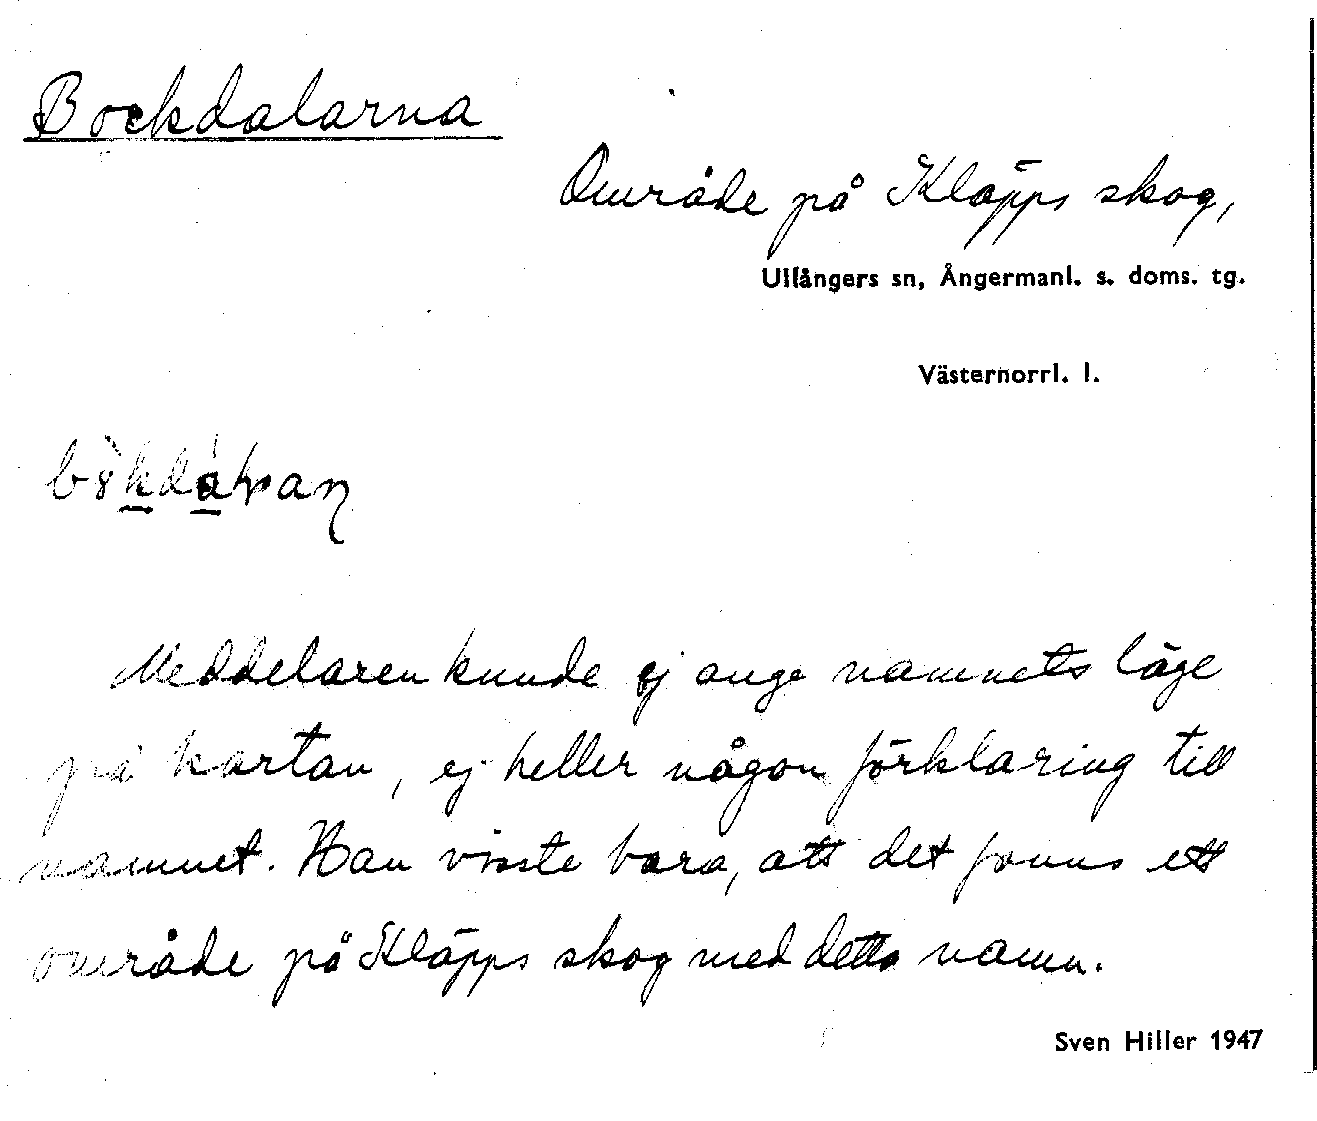 Bockdalarna
Område på Kläpps skog,
Ullångers sn, Ångermanl. s. doms. tg.
Västernorrl. l.
Meddelaren kunde ej ange namnets läge
på kartan, ej heller någon förklaring till
namnet. Han visste bara, att det fanns ett
område på Kläpps skog med detta namn.
Sven Hiller 1947